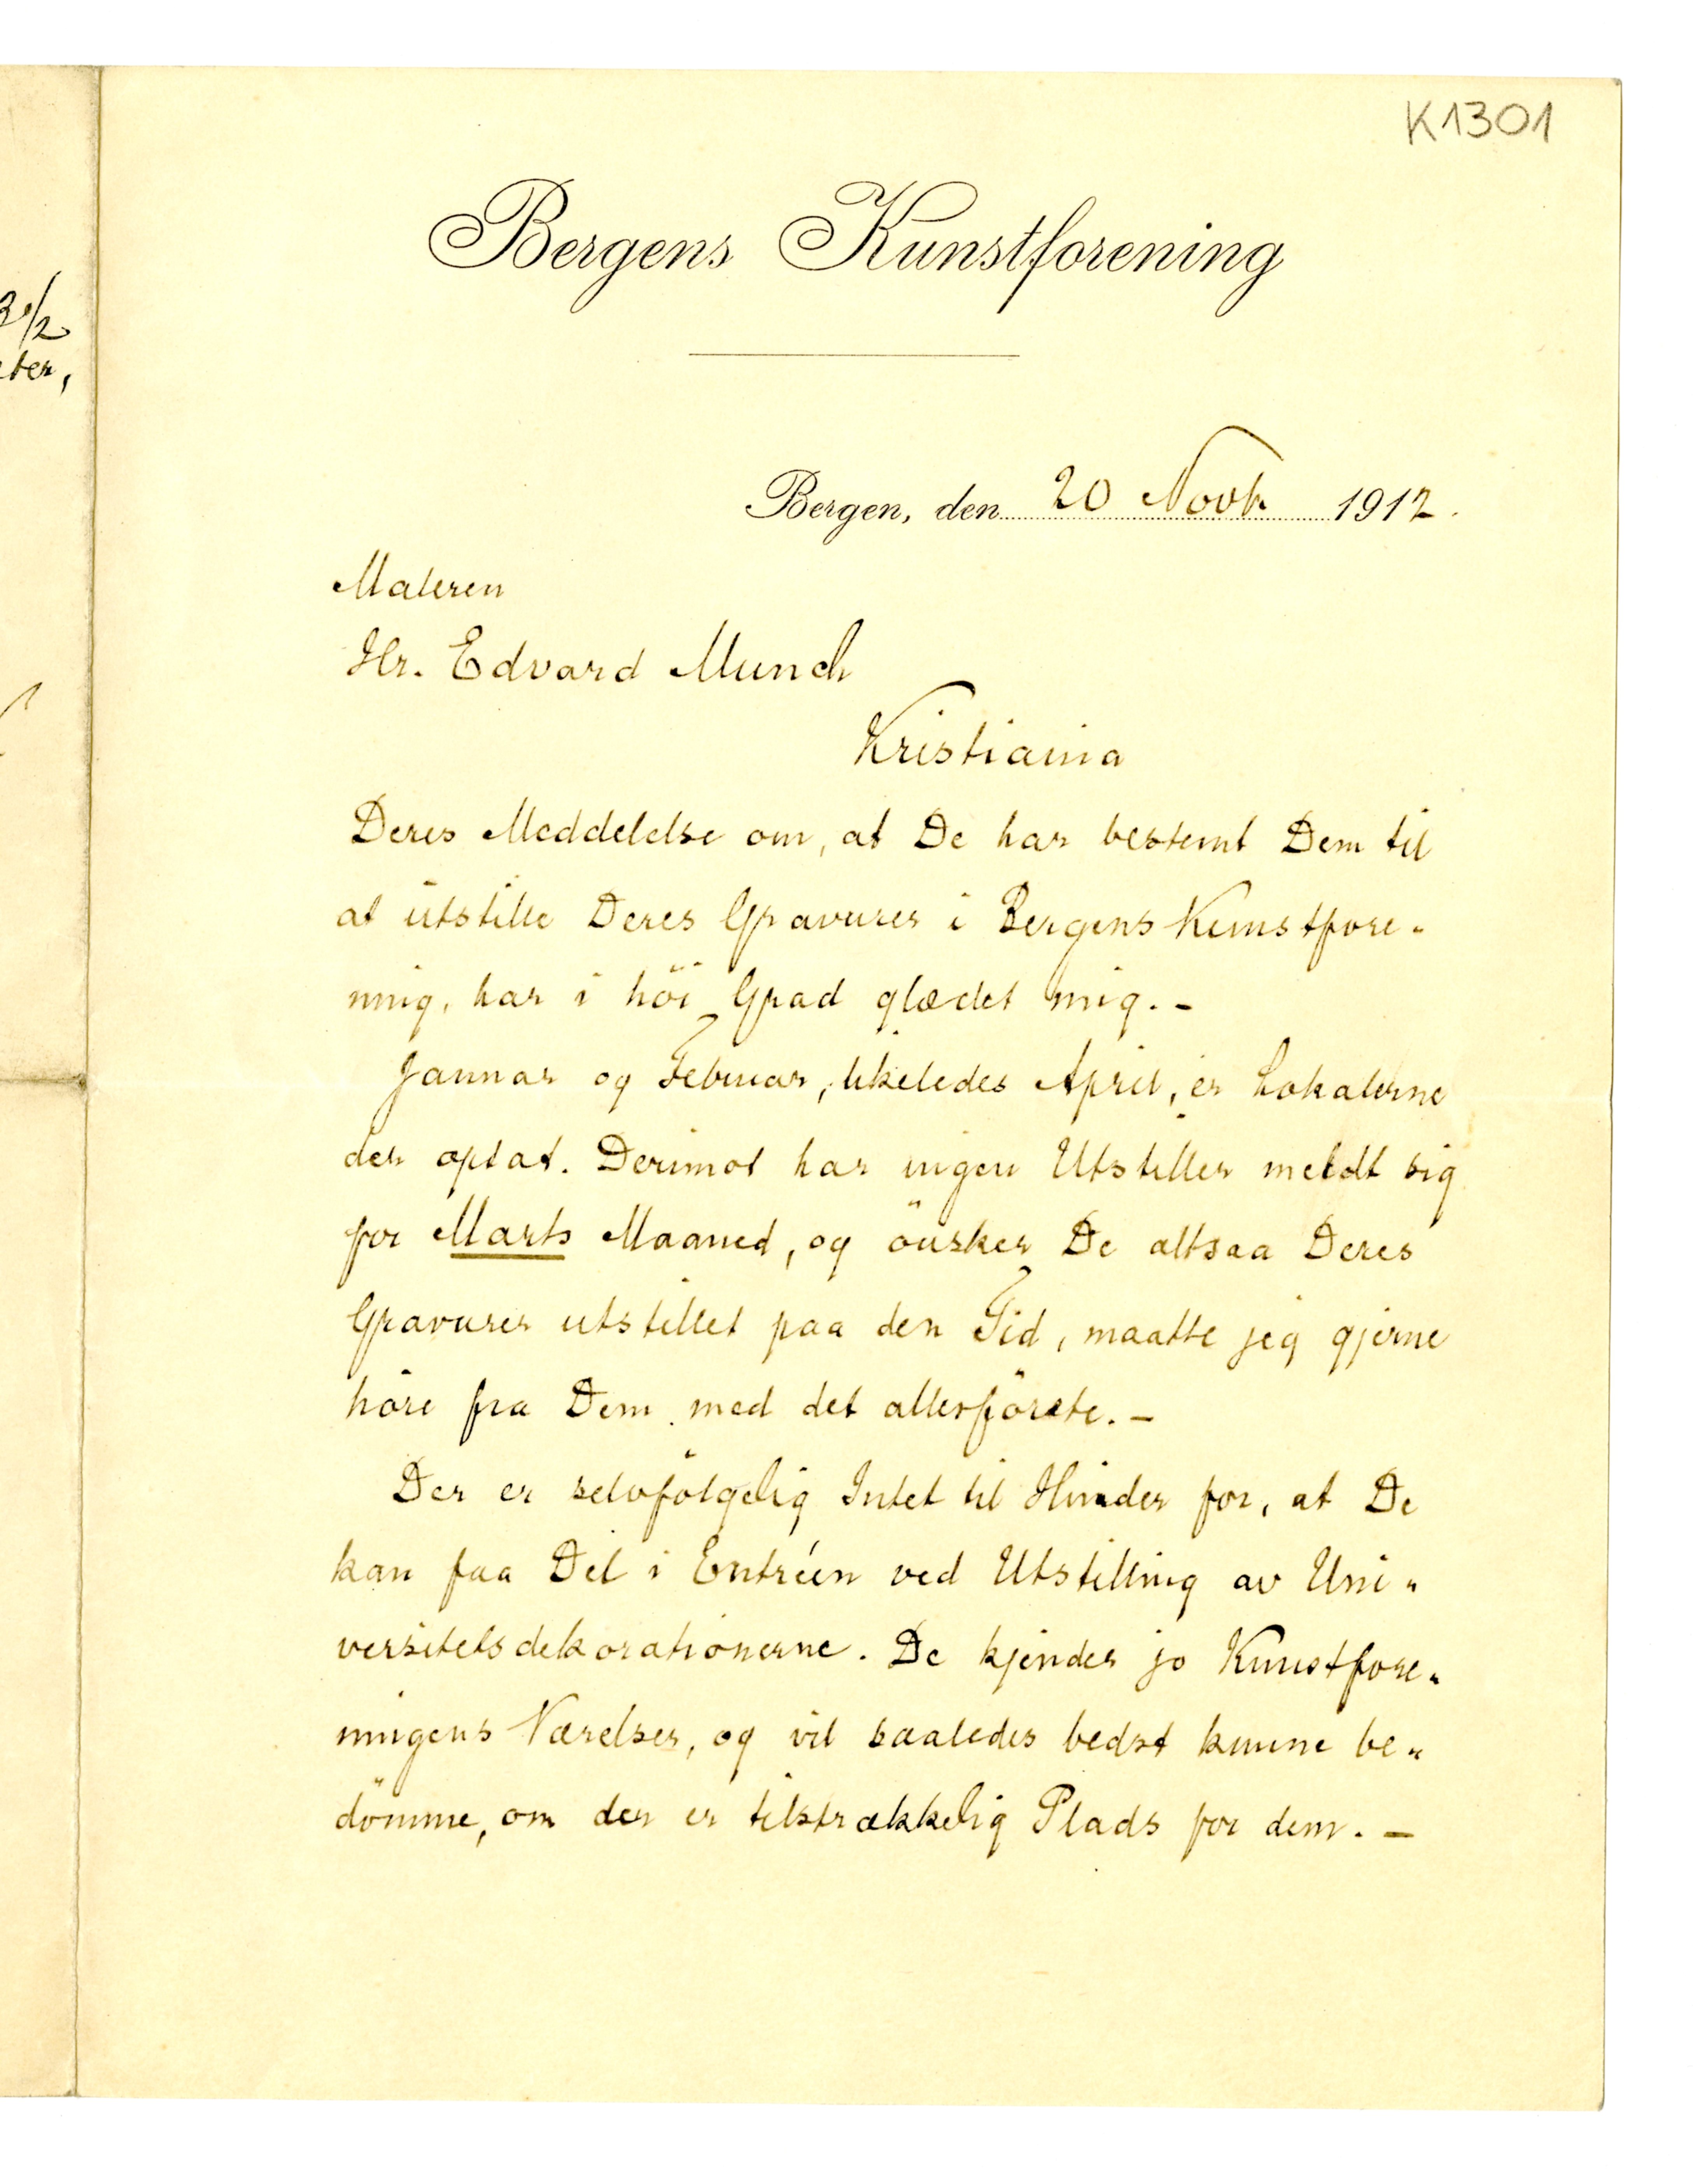 K1301
Bergens Kunstforening
3 1/2
eter,
Bergen, den 20 Novb. 1912.
Maleren
Hr. Edvard Munch
Kristiania
Deres Meddelelse om, at De har bestemt Dem til
at utstille Deres Gravurer i Bergens Kunstfore-
ning, har i höi Grad glædet mig. -
Januar og Februar, likeledes April, er Lokalerne
der optat. Derimot har ingen Utstiller meldt sig
for Marts Maaned, og önsker De altsaa Deres
Gravurer utstillet paa den Tid, maatte jeg gjerne
höre fra Dem med det allerförste. -
Der er selvfölgelig Intet til Hinder for, at De
kan faa Del i Entréen ved Utstilling av Uni-
versitetsdekorationerne. De kjender jo Kunstfore-
ningens Værelser, og vil saaledes bedst kunne be-
dömme, om der er tilstrækkelig Plads for dem. -